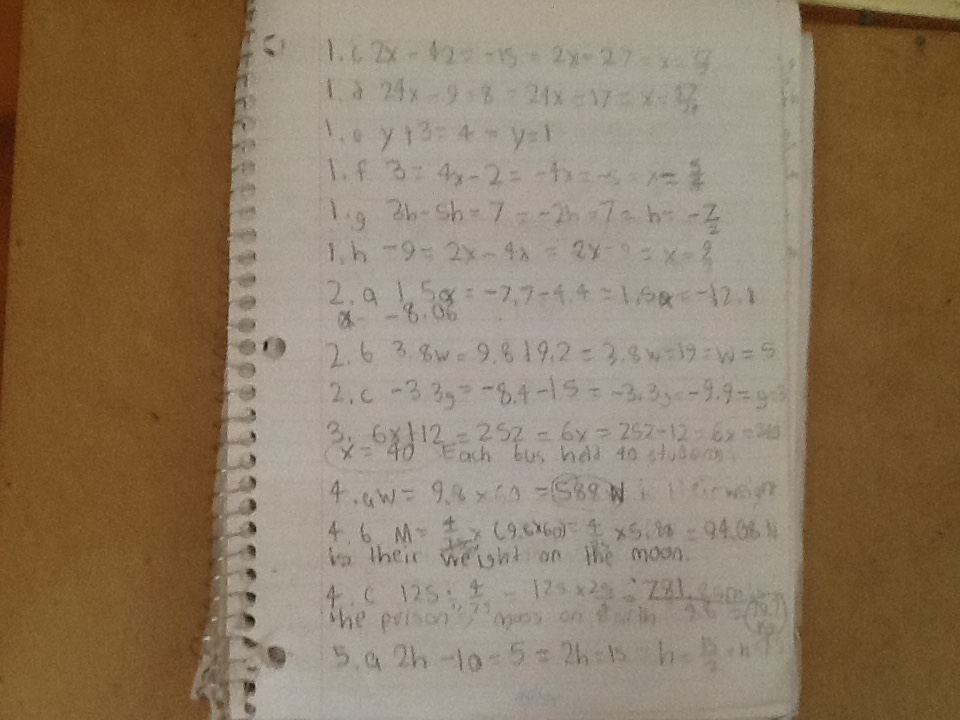 1.c 2x - 42 = -15 = 2x = 27 = x =
1.d 24x - 9 = 8 = 24x = 17 = x = 17/24
1.e y+3 = 4 = y=1
1.f 3 = 4x - 2 = -4x = -5 = x = 5/4
1.g 3h-5h = 7 = -2h = 7 = h = -7/2
1.h -9 = 2x - 4x = 2x = 9 = x = 9/2
2.a 1.5a = -7.7-4.4 = 1.5a = -12.1
a = -8.06
2.b 3.8w = 9.8+9.2 = 3.8w=19 = w = 5
2.c -3.3g = -8.4-1.5 = -3.3g = -9.9 = g=3
3. 6x+12 = 252 = 6x = 252-12 = 6x = 240
x = 40 Each bus held 40 students.
4.a W = 9.8 x 60 = 588 N is their weight
4.b M = 4/25 x (9.8x60) = 4/25 x 588 = 94.08 N
is their weight on the moon.
4.c 125 ÷ 4/25 = 125 x 25 ÷ 781.25
the person's mass on Earth 9.8 = 79.7
5.a 2h - 10 = 5 = 2h = 15 = h = 15/2 = h